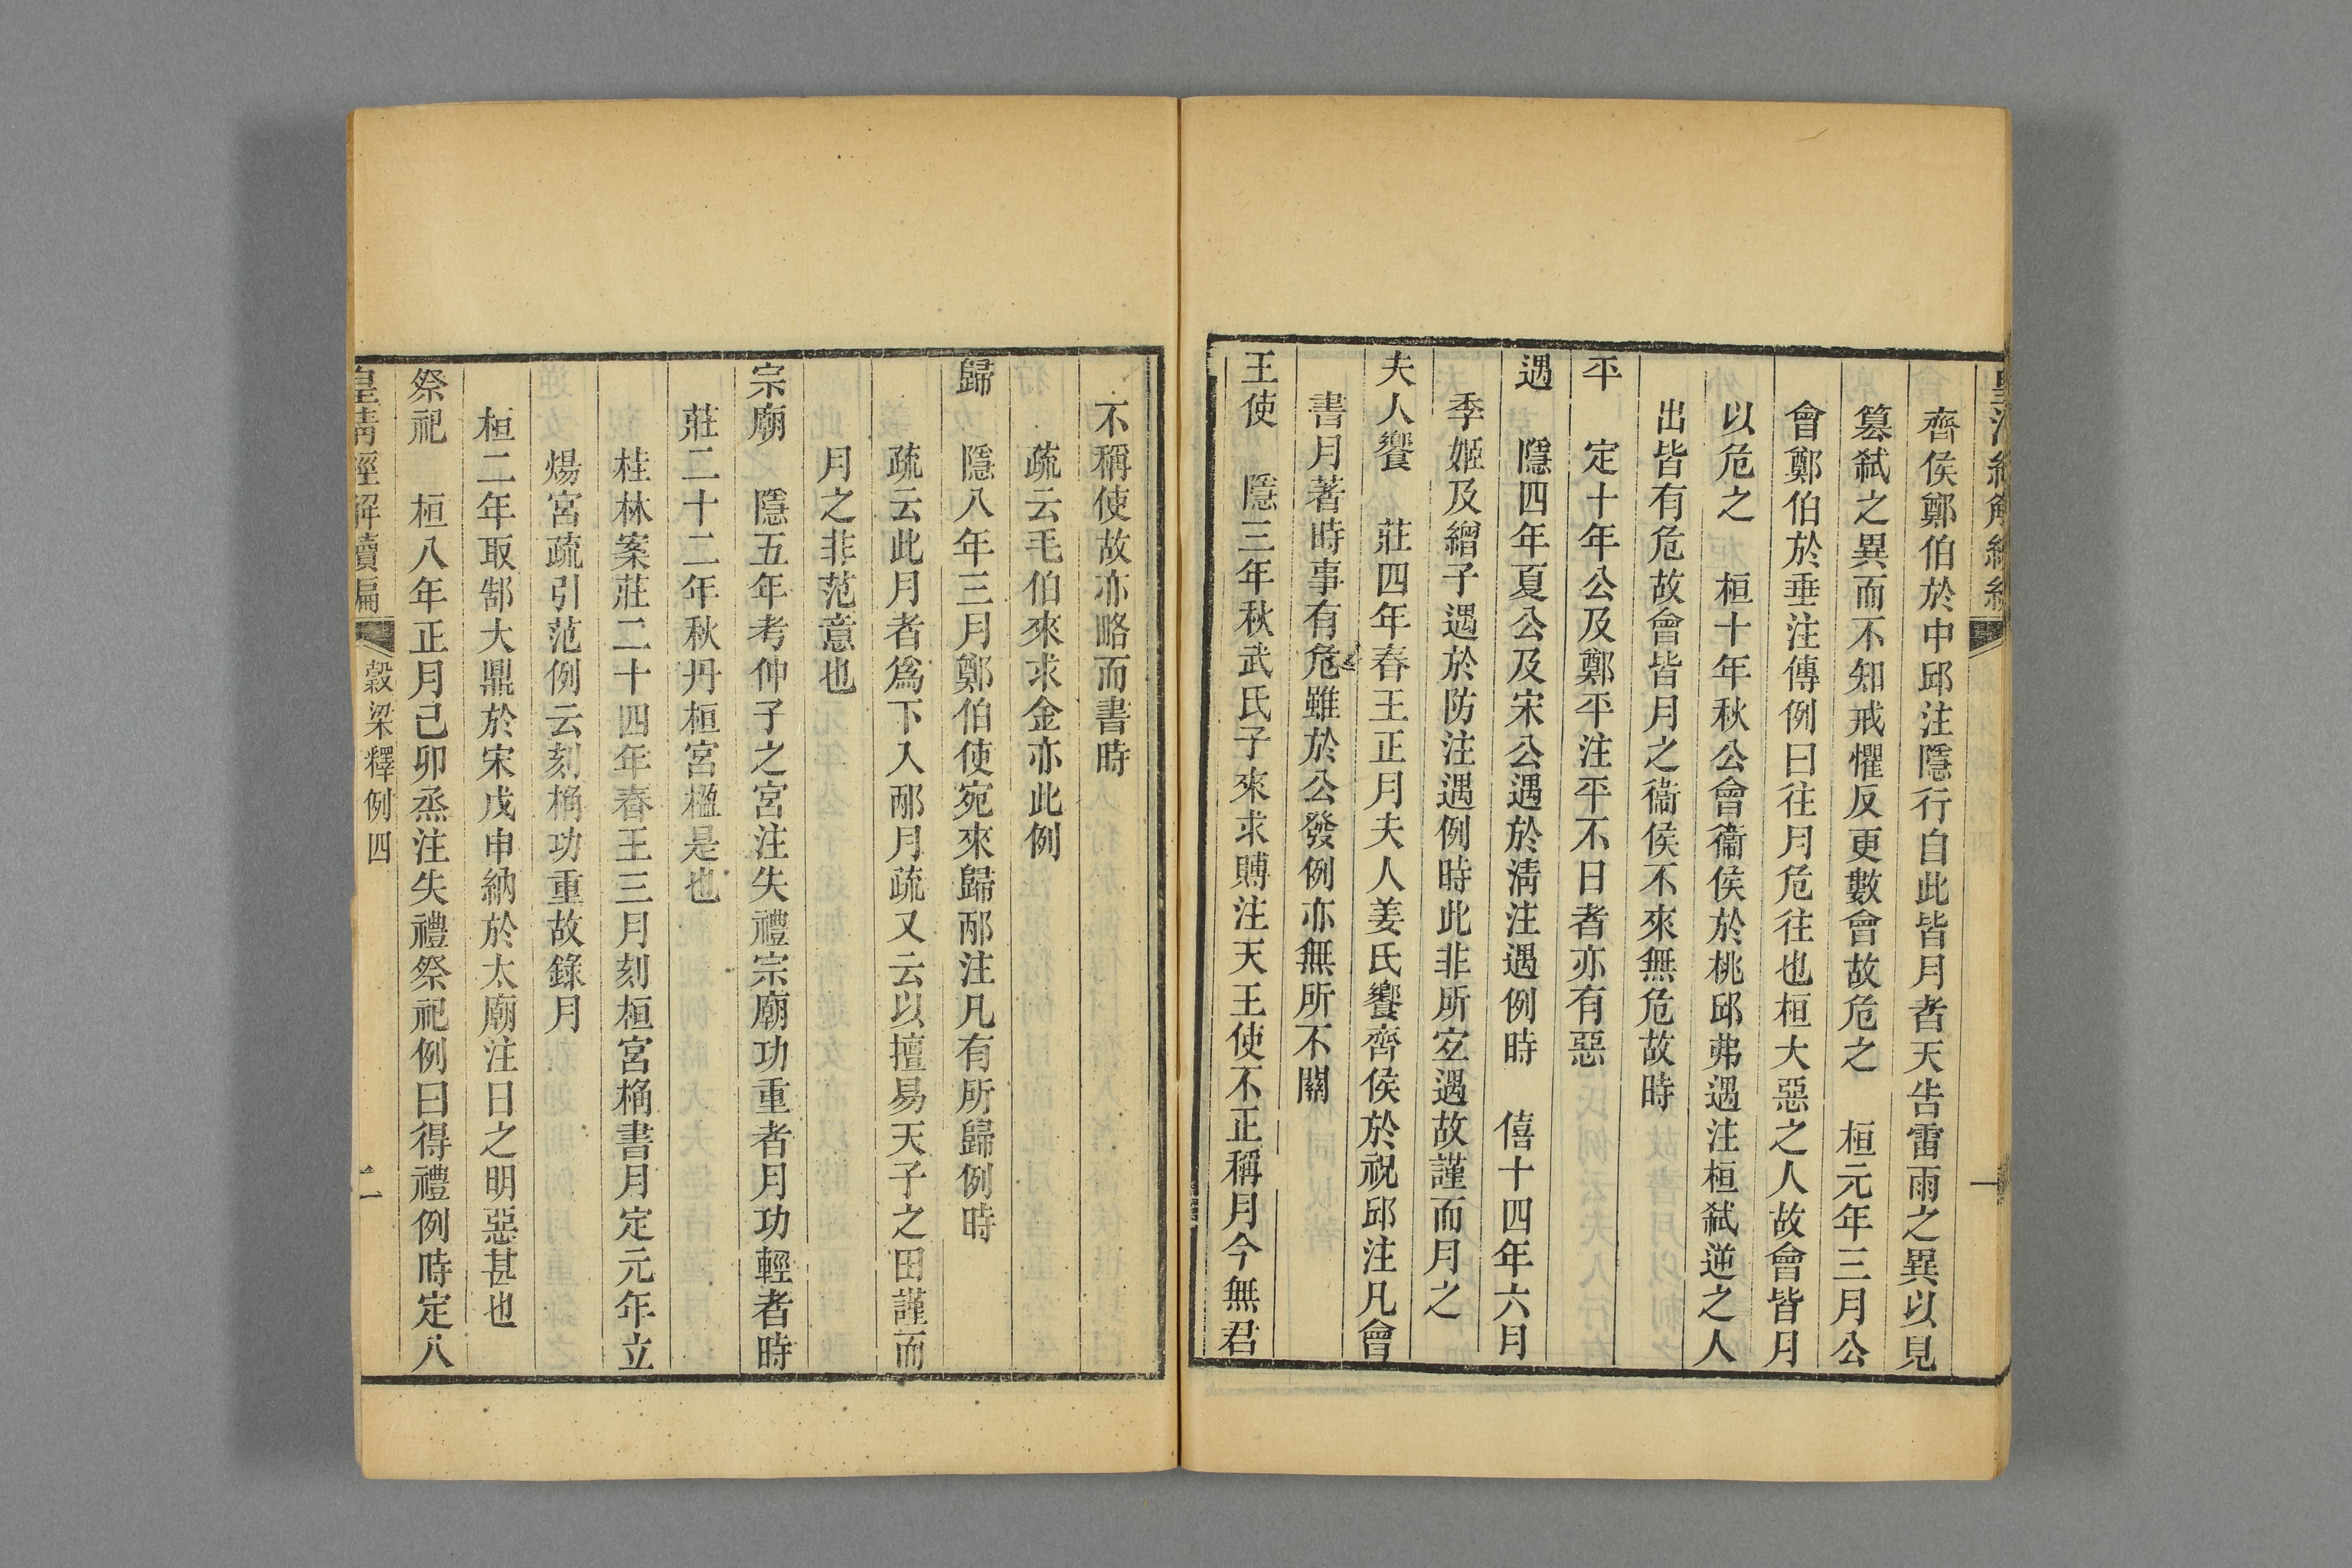 齊侯鄭伯於中邱注隱行自此皆月者天告雷雨之異以見
篡弑之異而不知戒懼反更數會故危之　桓元年三月公
會鄭伯於垂注傳例曰往月危往也桓大惡之人故會皆月
以危之　桓十年秋公會衞侯於桃邱弗遇注桓弑逆之人
出皆有危故會皆月之衞侯不來無危故時
平　定十年公及鄭平注平不日者亦有惡
遇　隱四年夏公及宋公遇於淸注遇例時　僖十四年六月
季姬及繒子遇於防注遇例時此非所宐遇故謹而月之
夫人饗　莊四年春王正月夫人姜氏饗齊侯於祝邱注凡會
書月著時事有危雖於公發例亦無所不關
王使　隱三年秋武氏子來求賻注天王使不正稱月今無君
不稱使故亦略而書時
疏云毛伯來求金亦此例
歸　隱八年三月鄭伯使宛來歸邴注凡有所歸例時
疏云此月者爲下入邴月疏又云以擅易天子之田謹而
月之非范意也
宗廟　隱五年考仲子之宮注失禮宗廟功重者月功輕者時
莊二十二年秋丹桓宮楹是也
桂林案莊二十四年春王三月刻桓宮桷書月定元年立
煬宮疏引范例云刻桷功重故錄月
桓二年取郜大鼎於宋戊申納於太廟注日之明惡甚也
祭祀　桓八年正月己卯烝注失禮祭祀例曰得禮例時定八
皇淸經解續編
穀梁釋例四
二